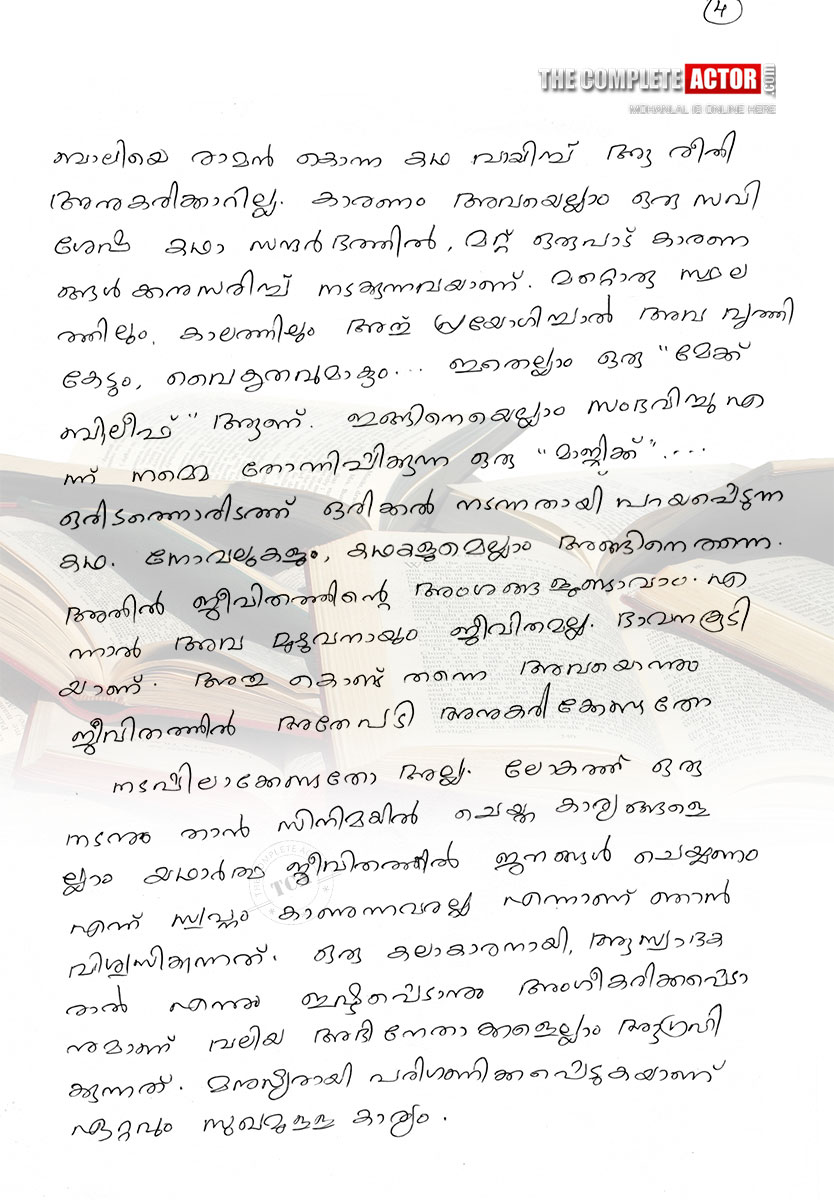 4
THE COMPLETE ACTOR .COM
MOHANLAL IS ONLINE HERE
ബാലിയെ രാമൻ കൊന്ന കഥ വായിച്ച് ആ രീതി
അനുകരിക്കാറില്ല. കാരണം അവയെല്ലാം ഒരു സവി
ശേഷ കഥാ സന്ദർഭത്തിൽ, മറ്റ് ഒരുപാട് കാരണ
ങ്ങൾക്കനുസരിച്ച് നടക്കുന്നവയാണ്. മറ്റൊരു സ്ഥല
ത്തിലും, കാലത്തിലും അത് പ്രയോഗിച്ചാൽ അവ വൃത്തി
കേടും, വൈകൃതവുമാകും... ഇതെല്ലാം ഒരു "മേക്ക്
ബിലീഫ്" ആണ്. ഇങ്ങിനെയെല്ലാം സംഭവിച്ചു എ
ന്ന് നമ്മെ തോന്നിപ്പിക്കുന്ന ഒരു "മാജിക്ക്"....
ഒരിടത്തൊരിടത്ത് ഒരിക്കൽ നടന്നതായ് പറയപ്പെടുന്ന
കഥ. നോവലുകളും, കഥകളുമെല്ലാം അങ്ങിനെ തന്നെ.
അതിൽ ജീവിതത്തിന്റെ അംശങ്ങളുണ്ടാവാം. എ
ന്നാൽ അവ മുഴുവനായും ജീവിതമല്ല. ഭാവനകൂടി
യാണ്. അതു കൊണ്ട് തന്നെ അവയൊന്നും
ജീവിതത്തിൽ അതേപടി അനുകരിക്കേണ്ടതോ
നടപ്പിലാക്കേണ്ടതോ അല്ല. ലോകത്ത് ഒരു
നടനും താൻ സിനിമയിൽ ചെയ്ത കാര്യങ്ങളെ
ല്ലാം യഥാർത്ഥ ജീവിതത്തിൽ ജനങ്ങൾ ചെയ്യണം
എന്ന് സ്വപ്നം കാണുന്നവരല്ല എന്നാണ് ഞാൻ
വിശ്വസിക്കുന്നത്. ഒരു കലാകാരനായി, ആസ്വാദക
രാൽ എന്നും ഇഷ്ടപ്പെടാനും അംഗീകരിക്കപ്പെടാ
നുമാണ് വലിയ അഭിനേതാക്കളെല്ലാം ആഗ്രഹി
ക്കുന്നത്. മനുഷ്യരായി പരിഗണിക്കപ്പെടുകയാണ്
ഏറ്റവും സുഖമുള്ള കാര്യം.